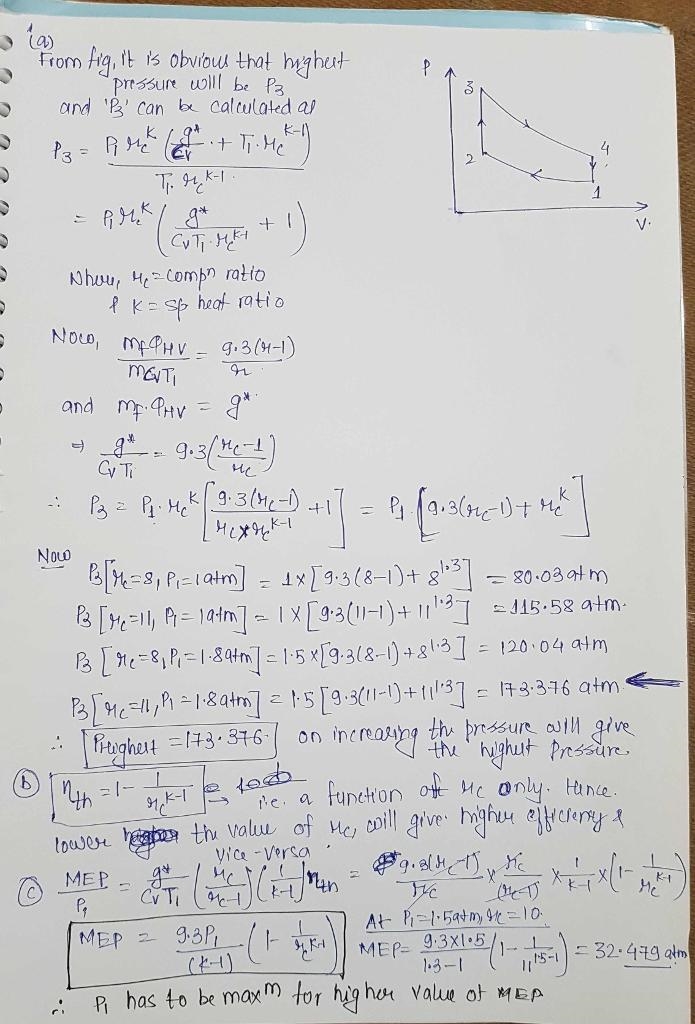 (a)
From fig, it is obvious that highest
pressure will be P3
and 'P3' can be calculated as
P3 = P1 rc^K (g*/Cv + T1.rc^K-1) / T1.rc^K-1
= P1 rc^K ( g*/CvT1.rc^K-1 + 1 )
Where, rc = compn ratio
& K = sp heat ratio
P
3
2
4
1
V.
Now, mfQHV/mCvT1 = 9.3(r-1)/r
and mf.QHV = g*
⇒ g*/CvT1 = 9.3(rc-1/rc)
∴ P3 = P1.rc^K [9.3(rc-1)/rc×rc^K-1 + 1] = P1 [9.3(rc-1) + rc^K]
Now
P3[rc=8, P1=1atm] = 1×[9.3(8-1)+8^1.3] = 80.03 atm
P3 [rc=11, P1=1atm] = 1×[9.3(11-1)+11^1.3] = 115.58 atm.
P3 [rc=8, P1=1.8atm] = 1.5×[9.3(8-1)+8^1.3] = 120.04 atm
P3 [rc=11, P1=1.8atm] = 1.5[9.3(11-1)+11^1.3] = 173.376 atm.
∴ Phighest = 173.376 on increasing the pressure will give
the highest pressure
(b) ηth = 1 - 1/rc^K-1 → i.e. a function of rc only. Hence.
lower the value of rc, will give higher efficiency &
vice-versa
(c) MEP/P1 = g*/CvT1 (rc/rc-1)(1/K-1) ηth = 9.3(rc-1)/rc × rc/(rc-1) × 1/K-1 × (1 - 1/rc^K-1)
MEP = 9.3P1/(K-1) (1 - 1/rc^K-1)
At P1=1.5atm, rc=10.
MEP = 9.3×1.5/1.3-1 (1 - 1/11^1.5-1) = 32.479 atm
∴ P1 has to be max^m for higher value of MEP